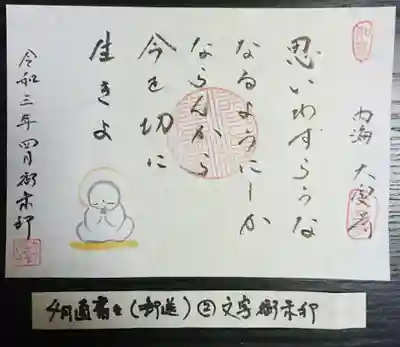 内海 大聖寺
思いわずらうな
なるようにしか
ならんから
今を切に
生きよ
令和三年四月御朱印
4月直書き(郵送)②文字御朱印